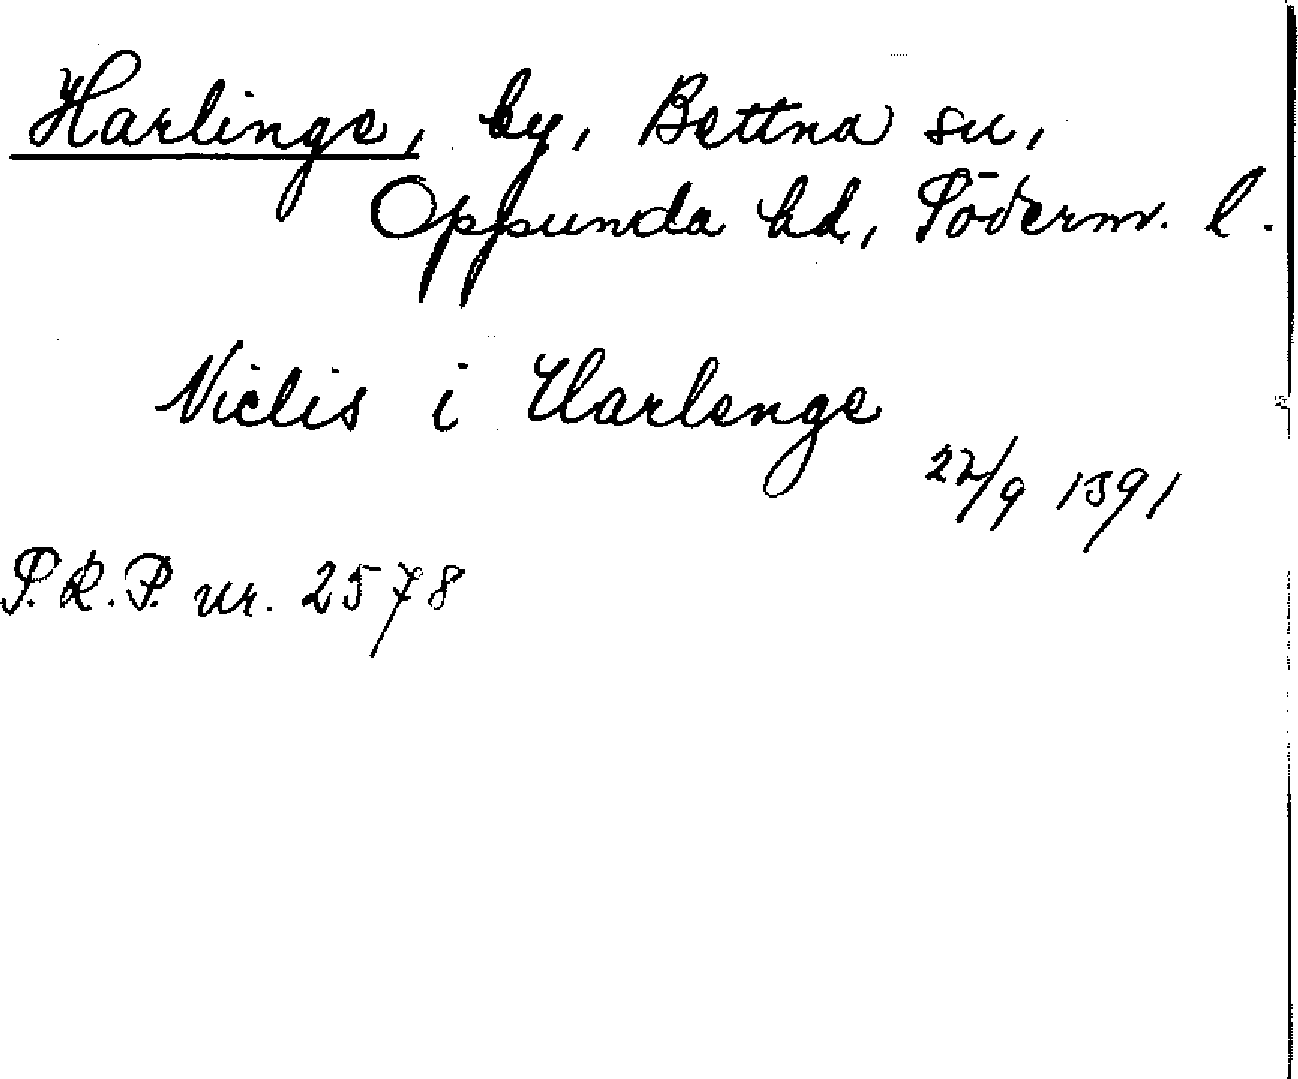 Harlinge, by, Bettna sn,
Oppunda hd, Söderm. l.
Niclis i Harlenge
22/9 1391
P.R.P. nr. 2578